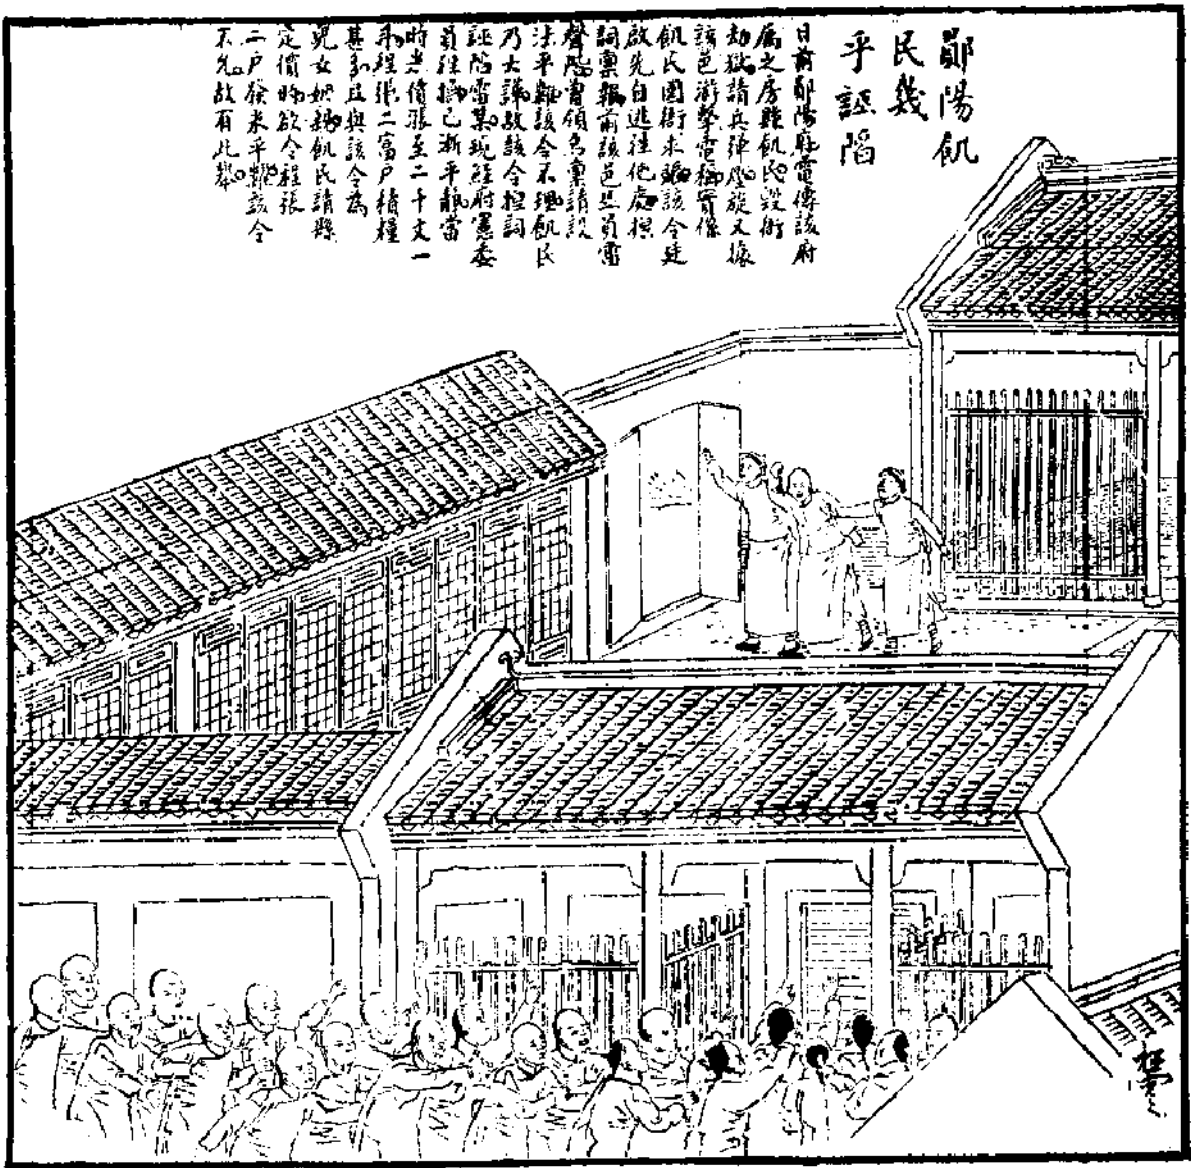 鄖陽飢
民幾
乎誣陷
日前鄖陽府電傳該府
屬之房縣飢民毀衙
劫獄請兵彈壓旋又據
該邑游擊電稱實係
飢民圍衙求賑該令廷
啟先自逃往他處
詞稟報前該邑
聲階曾領為稟請設
法平糶該令不理飢民
乃大譁故該令控詞
誣陷雷某現經府憲委
員往撫已漸平靜當
時米價漲至二千文一
斗程張二富戶積糧
甚多且與該令為
兒女姻親飢民請縣
定價時欲令程張
二戶發米平糶該令
不允故有此舉